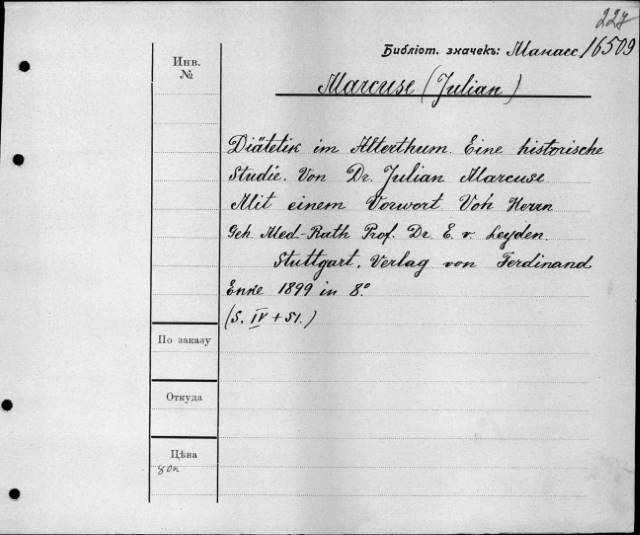 227
Библіот. значекъ: Манасс 16509
Инв.
№
Marcuse (Julian)
Diätetik im Alterthum. Eine historische
Studie. Von Dr. Julian Marcuse
Mit einem Vorwort Von Herrn
Geh. Med.-Rath Prof. Dr E. v. Leyden.
Stuttgart. Verlag von Ferdinand
Enke 1899 in 8.º
(S. IV + 51.)
По заказу
Откуда
Цѣна
80к